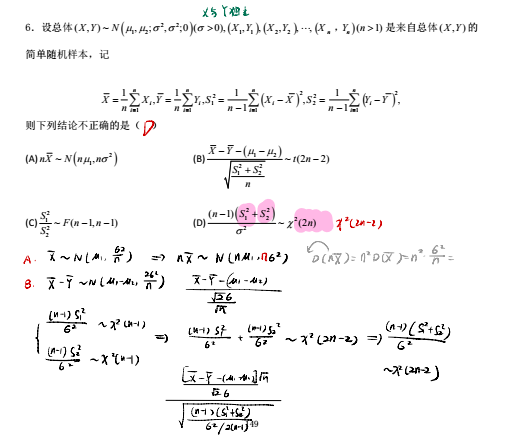 X与Y独立
6．设总体(X,Y)~N(μ₁,μ₂;σ²,σ²;0)(σ>0),(X₁,Y₁),(X₂,Y₂),⋯,(Xₙ，Yₙ)(n>1)是来自总体(X,Y)的
简单随机样本，记
X̄=1/n ∑ᵢ₌₁ⁿ Xᵢ,Ȳ=1/n ∑ᵢ₌₁ⁿ Yᵢ,S₁²=1/(n−1) ∑ᵢ₌₁ⁿ (Xᵢ−X̄)²,S₂²=1/(n−1) ∑ᵢ₌₁ⁿ (Yᵢ−Ȳ)²,
则下列结论不正确的是（ D ）
(A) nX̄~N(nμ₁,nσ²) (B) (X̄−Ȳ−(μ₁−μ₂))/√((S₁²+S₂²)/n) ~ t(2n−2)
(C) S₁²/S₂² ~ F(n−1,n−1) (D) (n−1)(S₁²+S₂²)/σ² ~ χ²(2n) χ²(2n-2)
A. X̄ ~ N(μ₁, σ²/n) ⇒ nX̄ ~ N(nμ₁, nσ²) D(nX̄)=n²D(X̄)=n²·σ²/n=
B. X̄-Ȳ ~ N(μ₁-μ₂, 2σ²/n) (X̄-Ȳ-(μ₁-μ₂))/(√2σ/√n)
{ (n-1)S₁²/σ² ~ χ²(n-1)
(n-1)S₂²/σ² ~ χ²(n-1) ⇒ (n-1)S₁²/σ² + (n-1)S₂²/σ² ~ χ²(2n-2) ⇒ (n-1)(S₁²+S₂²)/σ²
~χ²(2n-2)
[X̄-Ȳ-(μ₁-μ₂)]√n / √2σ
√((n-1)(S₁²+S₂²) / σ²/2(n-1))